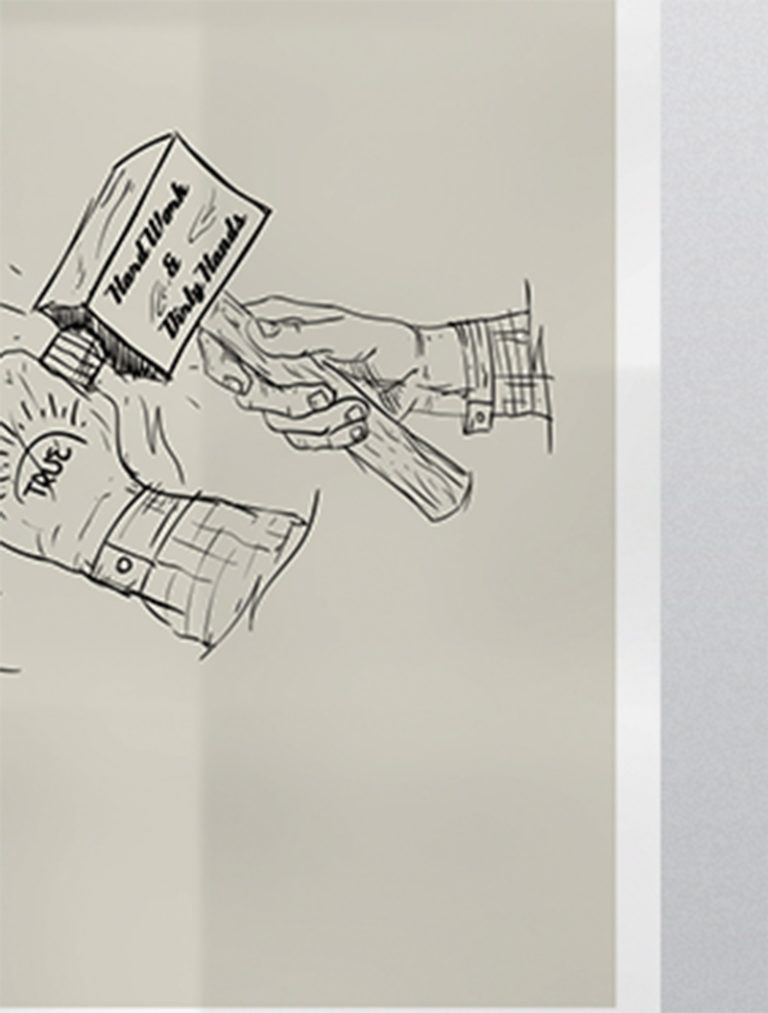 Hard Work
&
Dirty Hands
TRUE